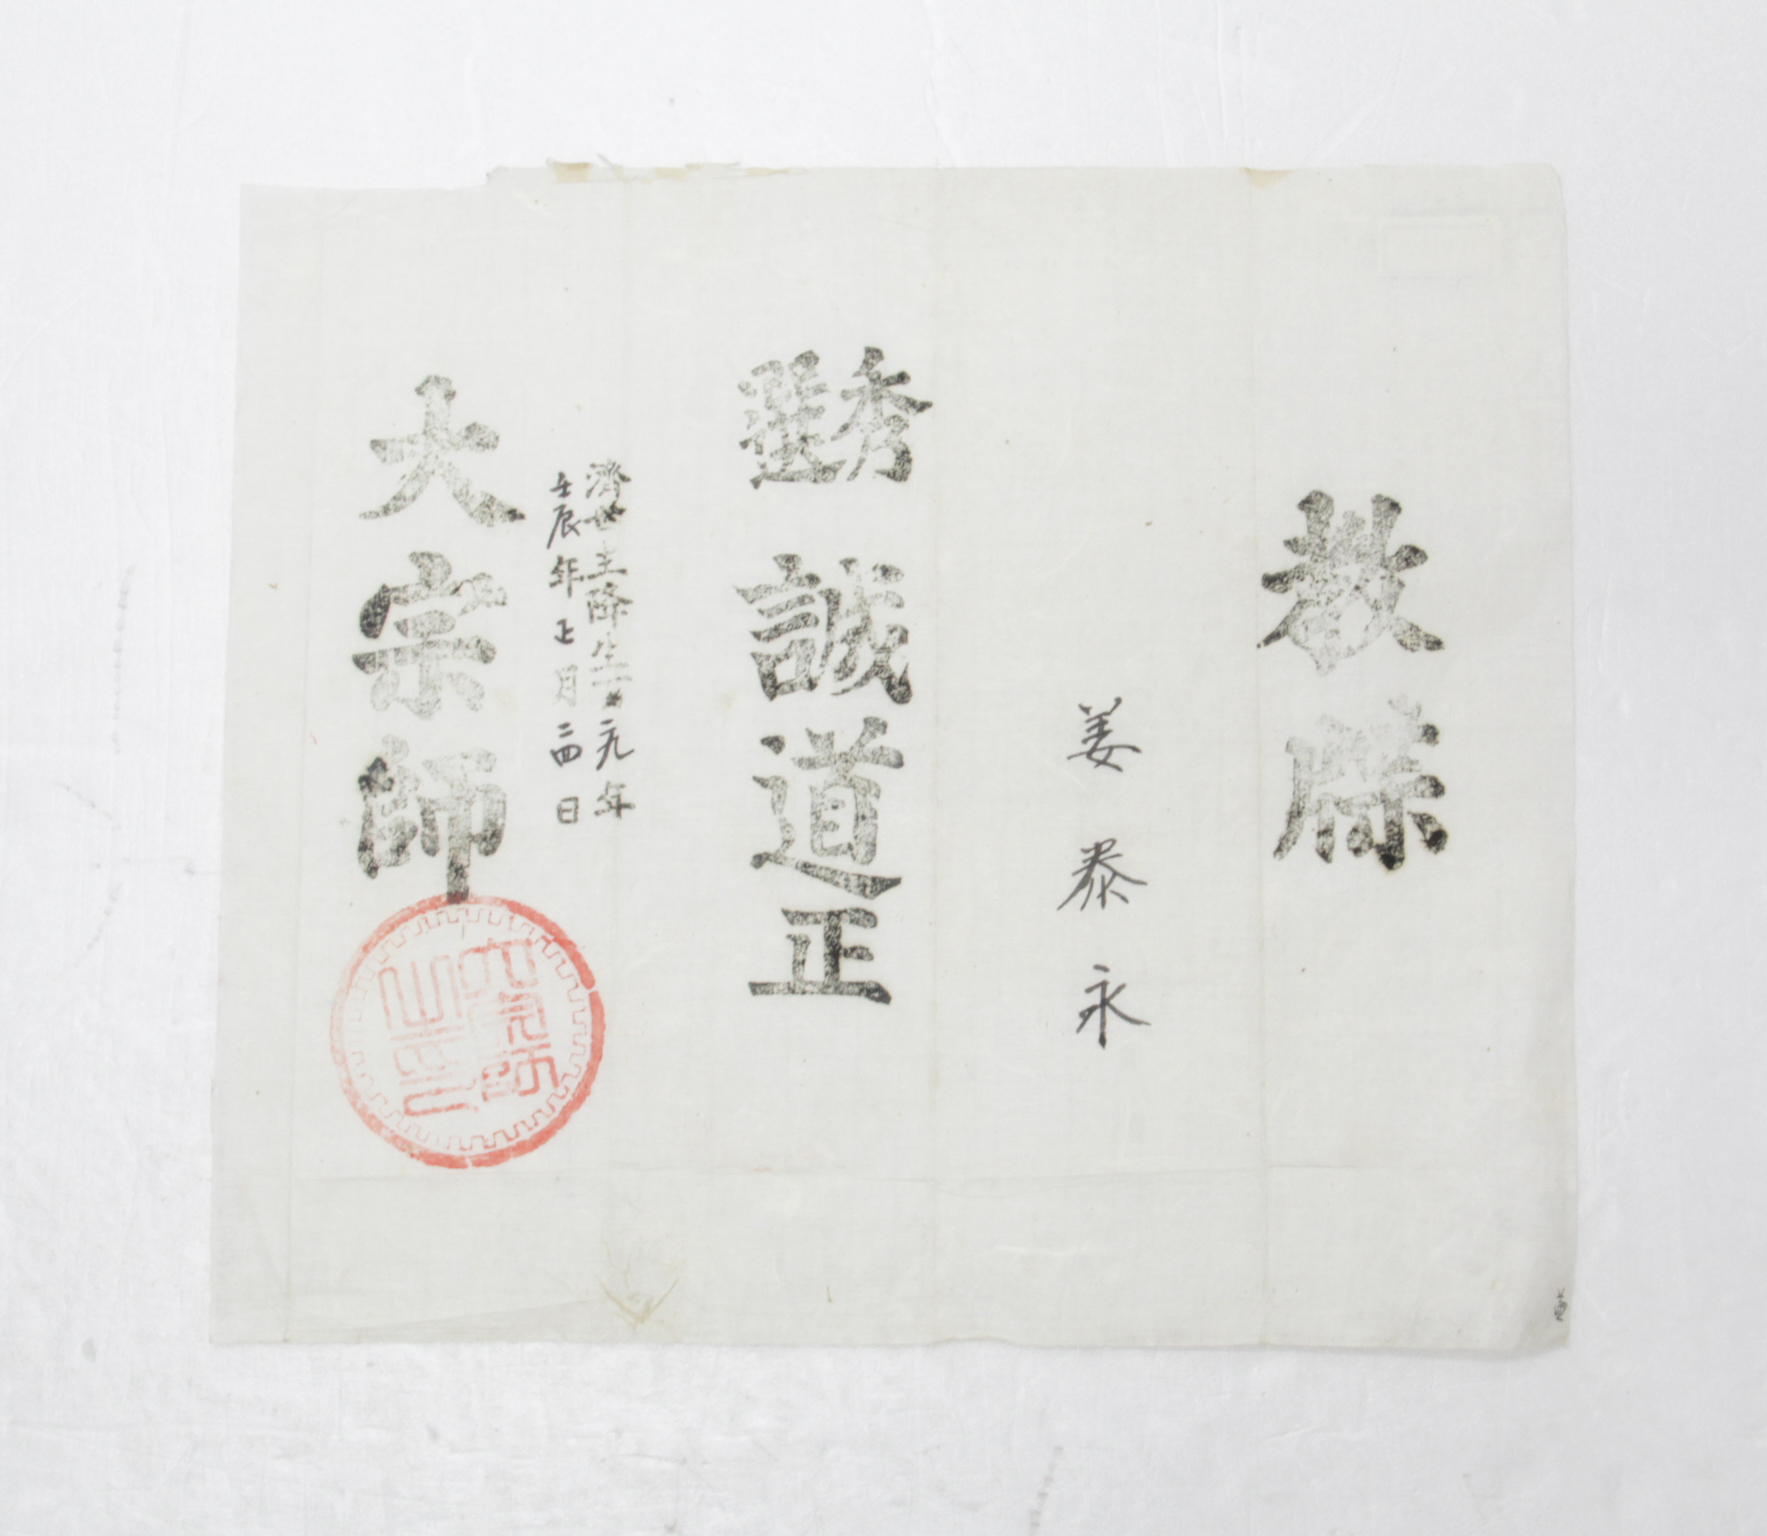 教牒
姜泰永
秀選 誠道正
濟世主降生百二九年
壬辰年正月二四日
大宗師
大宗師
之印